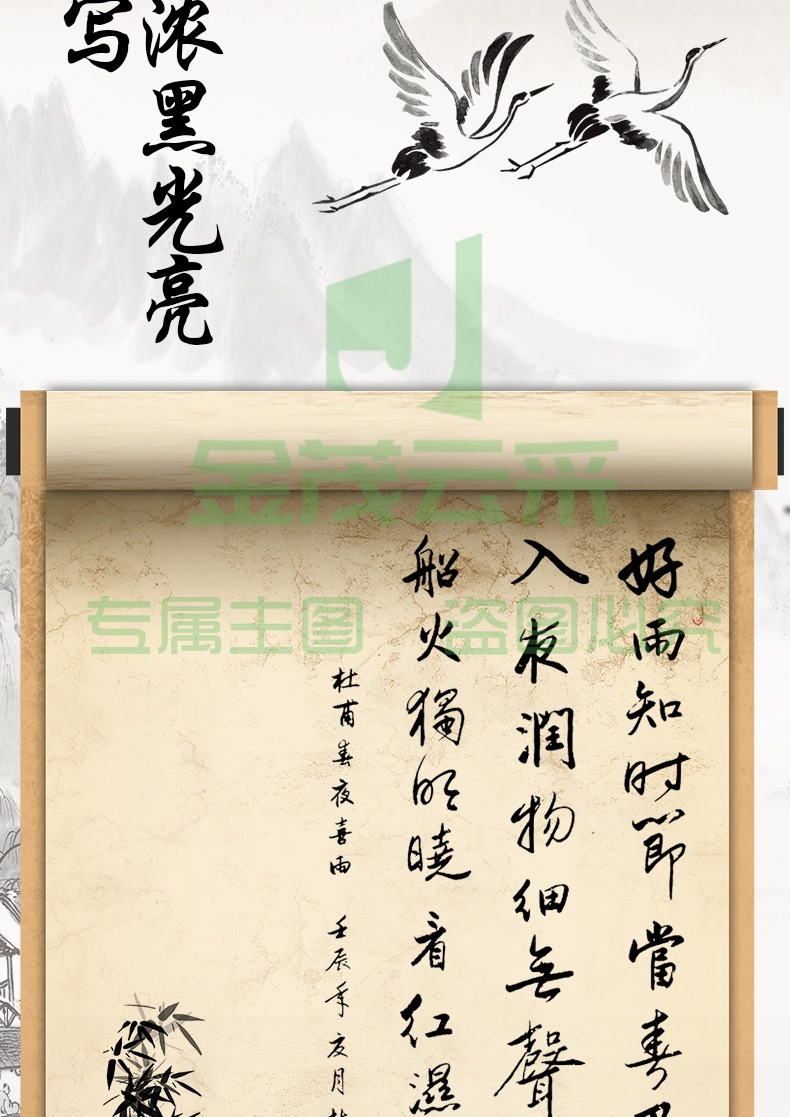 浓黑光亮
写
金茂云采
专属主图 盗图必究
好雨知时節當春
入夜潤物细無聲
船火獨明曉看红濕
杜甫春夜喜雨 壬辰年夜月